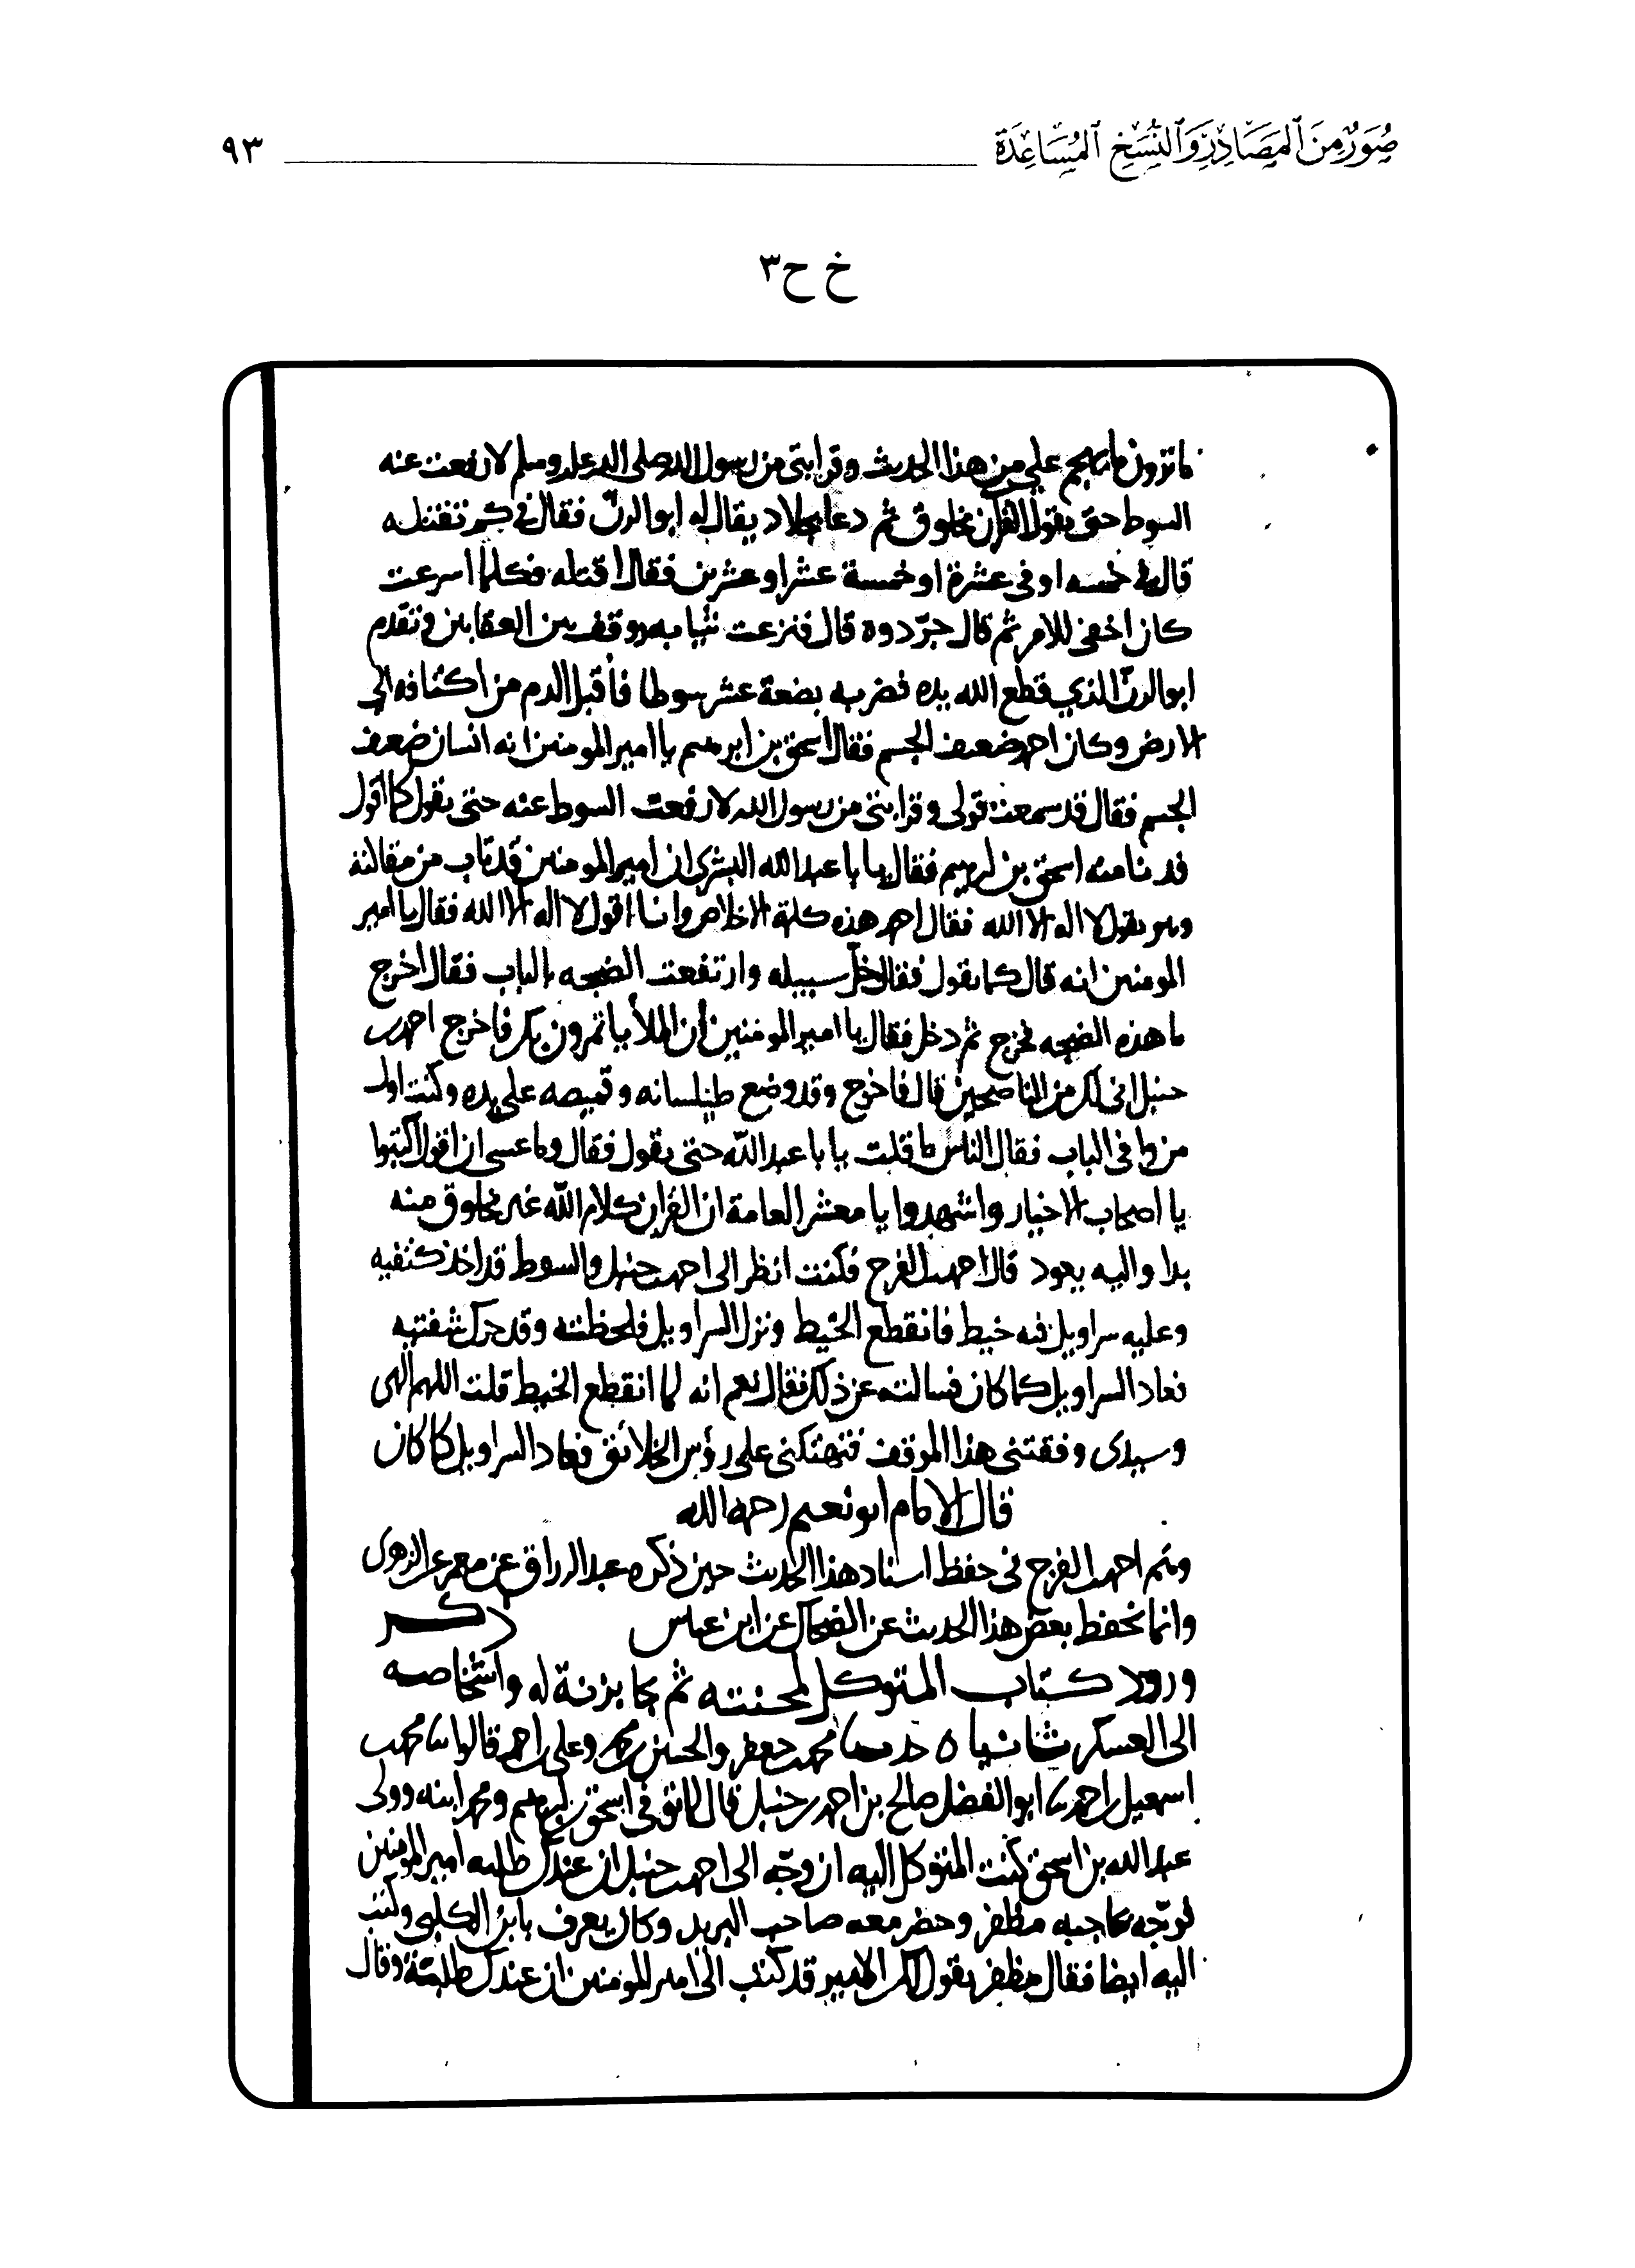 صُوَرٌ مِنَ ٱلمَصَادِرِ وَٱلنُّسَخِ ٱلمُسَاعِدَةِ ٩٣
خ ح ٣
ما ترون ما يهجم علي من هذا الحديث وقرابتي من رسول الله صلى الله عليه وسلم لا رفعت عنه
السوط حتى يقول القرآن مخلوق ثم دعا بجلاد يقال له ابو الدن فقال في كم تقتله
قال في خمسه او في عشرة او خمسة عشر او عشرين فقال اقتله فكلما اسرعت
كان اخفى للامر ثم قال جرّدوه قال فنزعت ثيابه ووقف بين العقابين وتقدم
ابو الدنّ الذي قطع الله يده فضربه بضعة عشر سوطا فأقبل الدم من اكتافه الى
الارض وكان احمد ضعيف الجسم فقال اسحق بن ابرهيم يا امير المومنين انه انسان ضعيف
الجسم فقال قد سمعت قولي وقرابتي من رسول الله لا رفعت السوط عنه حتى يقول كما اقول
فدنا منه اسحق بن ابرهيم فقال يا با عبد الله البشرى ان امير المومنين قد تاب من مقالته
وهو يقول لا اله الا الله فقال احمد هذه كلمة الاخلاص وانا اقول لا اله الا الله فقال يا امير
المومنين انه قال كما تقول فقال خلّ سبيله وارتفعت الضجه بالباب فقال اخرج
ما هذه الضجه فخرج ثم دخل فقال يا امير المومنين ان الملأ ياتمرون بك فاخرج احمد بن
حنبل اني لك من الناصحين قال فاخرج وقد وضع طيلسانه وقميصه على يده وكنت اول
من وافى الباب فقال الناس ما قلت يا با عبد الله حتى يقول فقال وما عسى ان اقول اكتبوا
يا اصحاب الاخبار واشهدوا يا معشر العامة ان القرآن كلام الله غير مخلوق منه
بدا واليه يعود قال احمد بن الفرج فكنت انظر الى احمد بن حنبل والسوط قد اخذ كتفيه
وعليه سراويل فيه خيط فانقطع الخيط ونزل السراويل فلحظته وقد حرك شفتيه
فعاد السراويل كما كان فسالته عن ذلك فقال نعم انه لما انقطع الخيط قلت اللهم الهى
وسيدى وقفتني هذا الموقف فتهتكني على رؤس الخلائق فعاد السراويل كما كان
قال الامام ابو نعيم رحمه الله
وهم احمد بن الفرج في حفظ اسناد هذا الحديث حين ذكره عبد الرزاق عن معمر عن الزهرى
وانما يحفظ بعض هذا الحديث عن الضحاك عن ابن عباس ذكر
ورود كتاب المتوكل لمحنته ثم بجائزته له واشخاصه
الى العسكر ثانيا ٥ حدثنا محمد بن جعفر والحسين بن محمد وعلي بن احمد قالوا ثنا محمد بن
اسمعيل بن احمد ثنا ابو الفضل صالح بن احمد بن حنبل قال لما توفي اسحق بن ابرهيم ومحمد ابنه وولى
عبد الله بن اسحق كتب المتوكل اليه ان وجّه الى احمد بن حنبل ان عندك طلبه امير المومنين
فوجّه بحاجبه مظفر وحضر معه صاحب البريد وكان يعرف بابن الكلبى وكتب
اليه ايضا فقال مظفر يقول لك الامير قد كتب الىّ امير المومنين ان عندك طلبته وقال